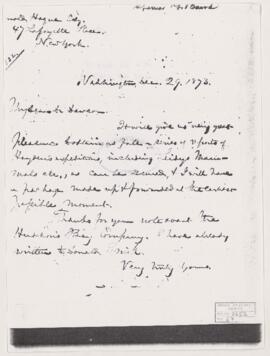 Spencer F. Baird
note, Hague Esq.
47 Lafayette Place
New York.
Washington, Dec. 29. 1873.
My dear Mr Dawson.
It will give us very great
pleasure to obtain as full a series of reports of
Hayden's expeditions, including Leidy's Mam-
mals &c., as can be secured, & I will have
a package made up & forwarded at the earliest
possible moment.
Thanks for your note about the
Hudson's Bay Company. I have already
written to Donald
Very truly yours,